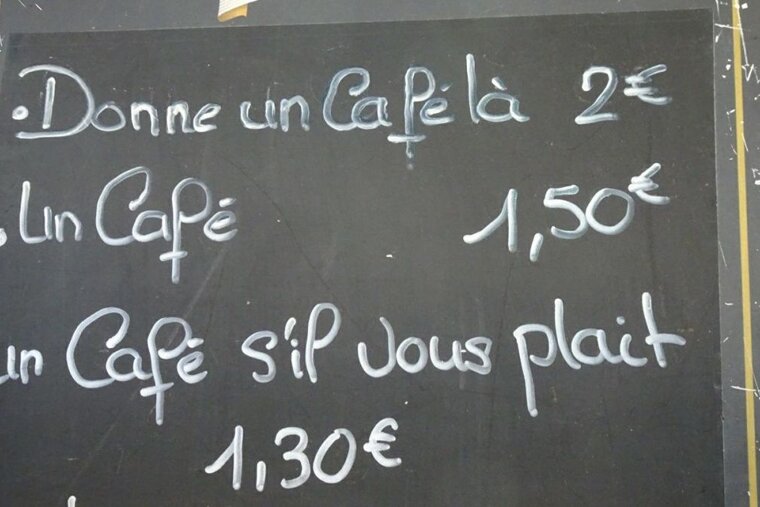 • Donne un Café là 2€
. Un Café 1,50€
un Café s'il vous plait
1,30€